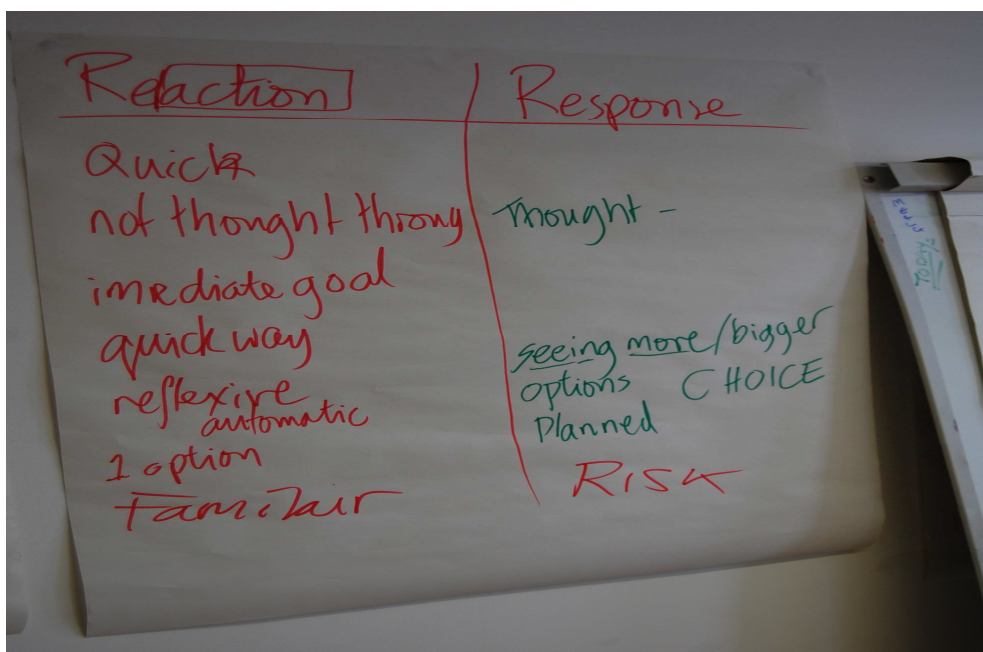 Reaction
Quick
not thought throug
imediate goal
quick way
reflexive
automatic
1 option
Familair
Response
Thought -
seeing more/bigger
options CHOICE
Planned
RISK
TODAY